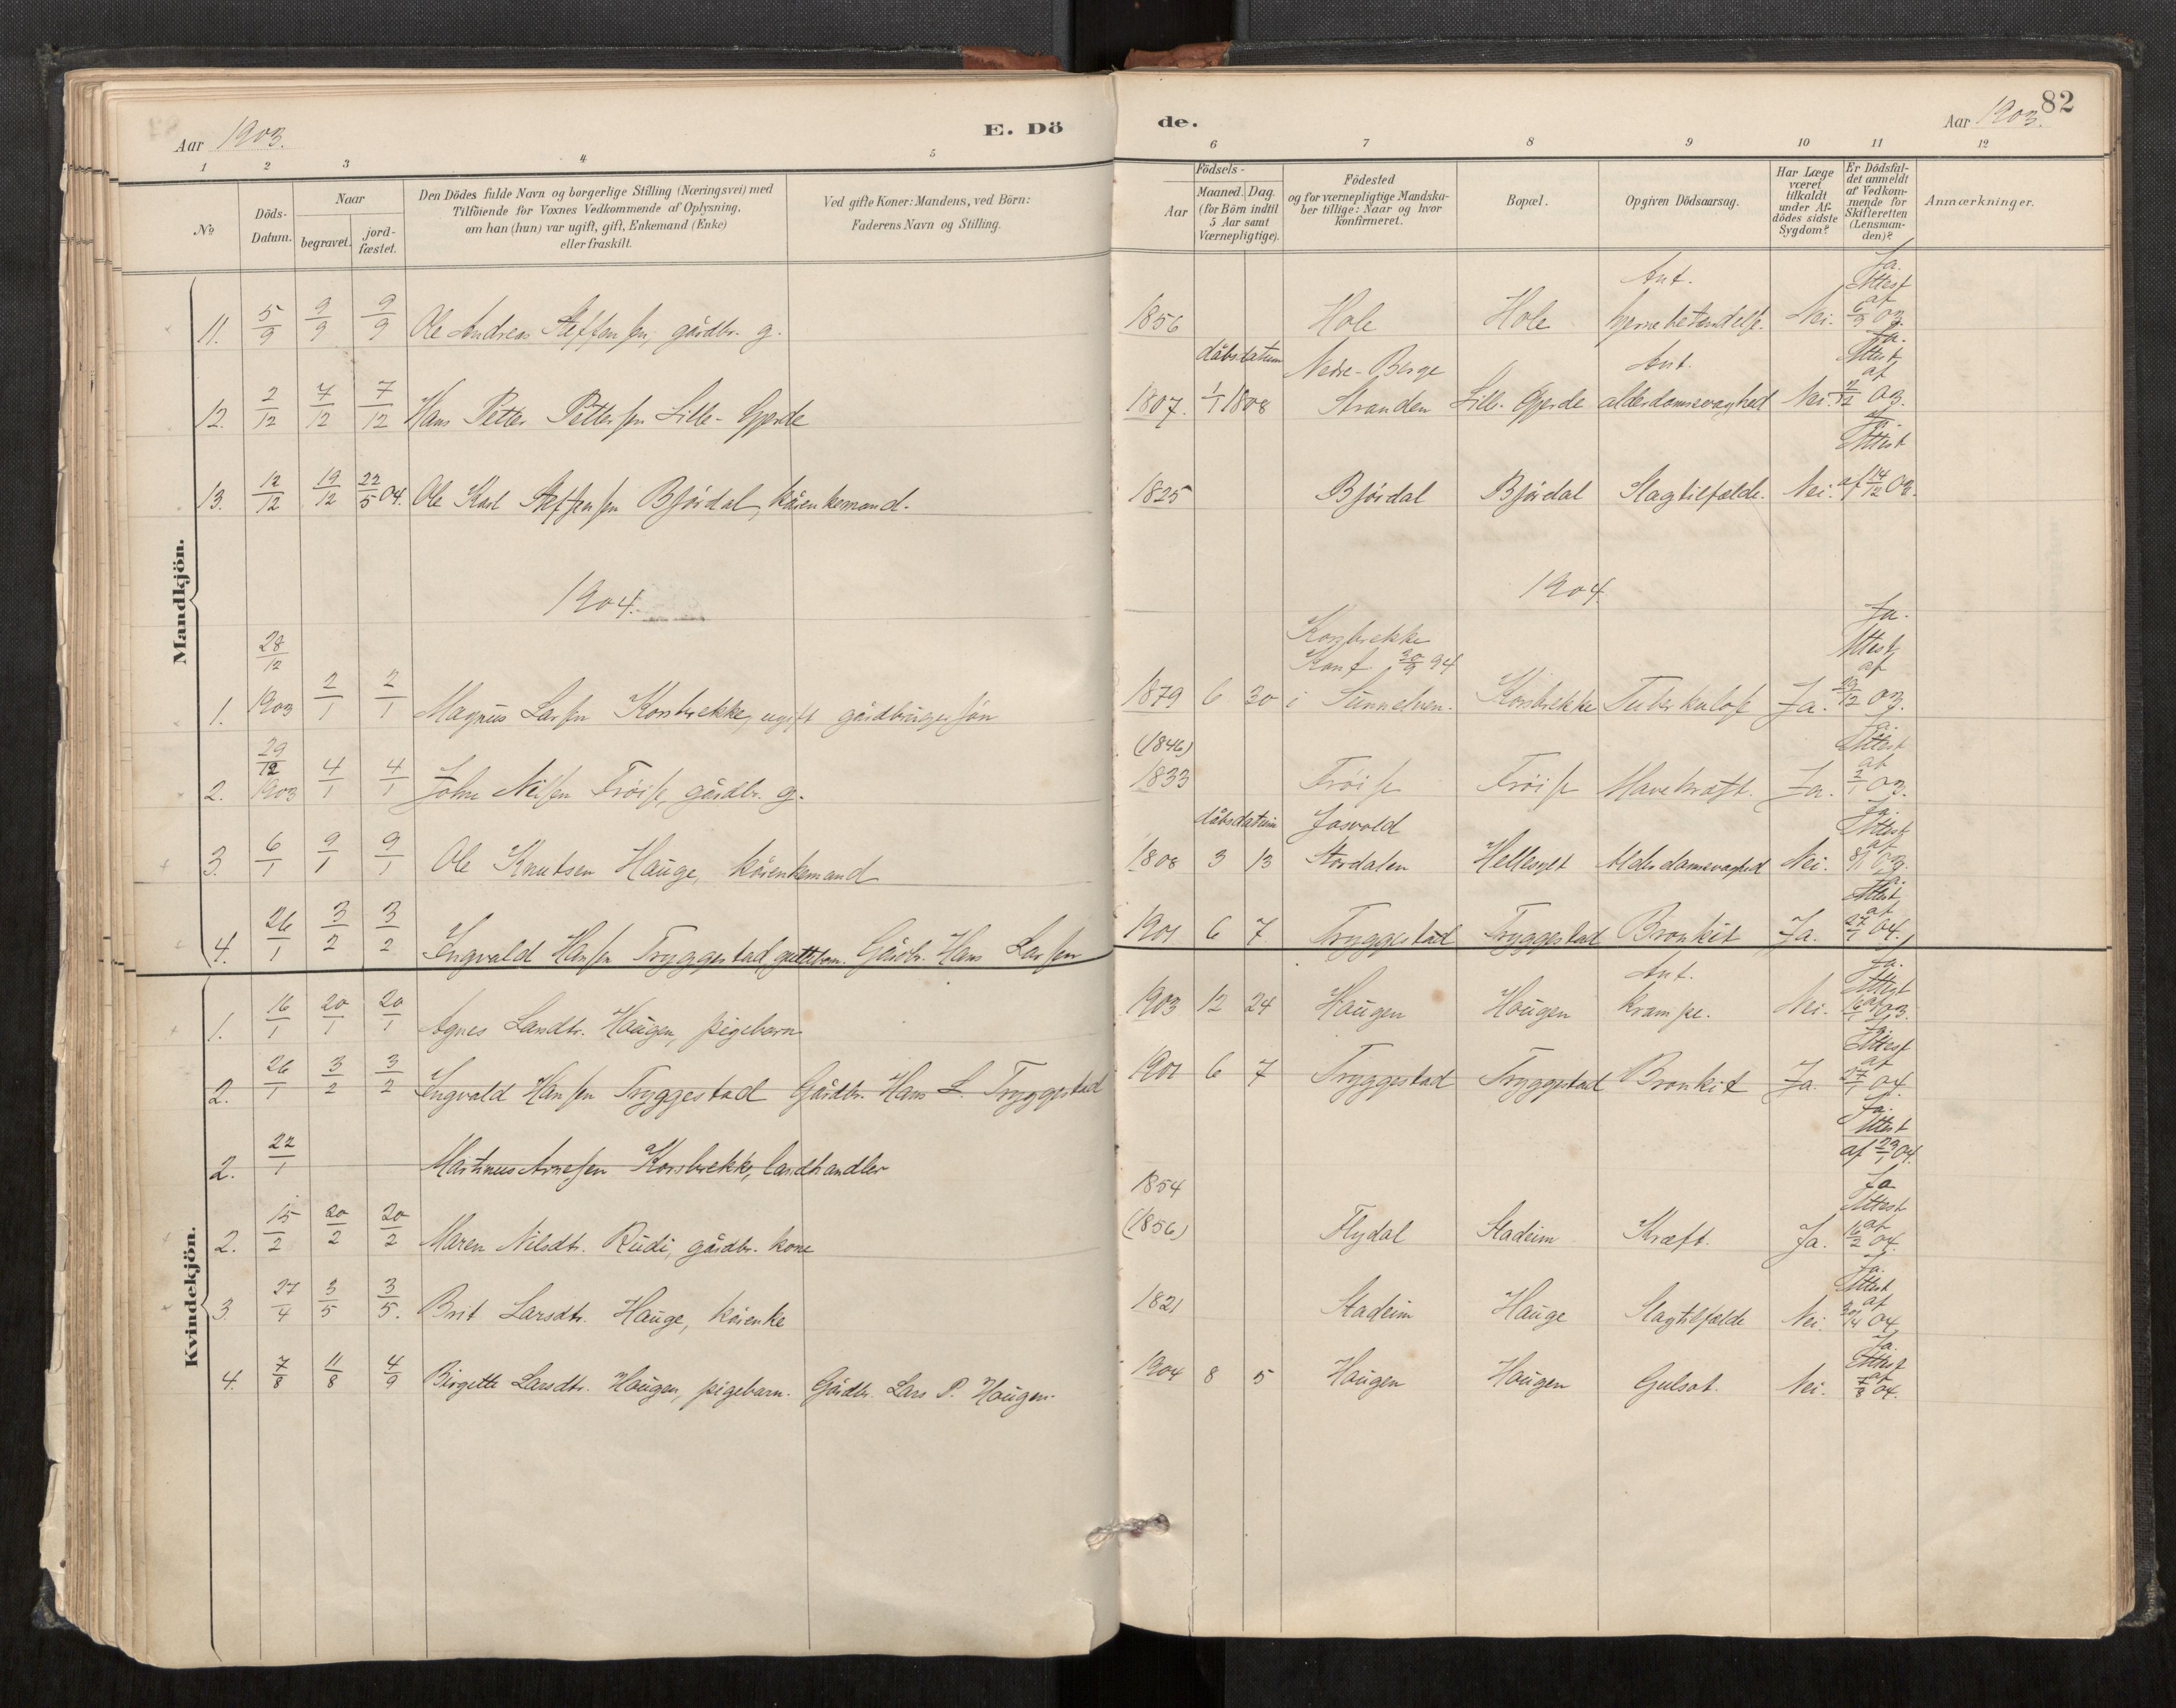 82
Aar 1903. E. Dö de. Aar 1903.
1 2 3 4 5 6 7 8 9 10 11 12
№
Döds-Datum.
Naar
begravet.
jord-fæstet.
Den Dödes fulde Navn og borgerlige Stilling (Næringsvei) med
Tilföiende for Voxnes Vedkommende af Oplysning,
om han (hun) var ugift, gift, Enkemand (Enke)
eller fraskilt.
Ved gifte Koner: Mandens, ved Börn:
Faderens Navn og Stilling.
Födsels-
Aar
Maaned. Dag.
(for Börn indtil
5 Aar samt
Værnepligtige).
Födested
og for værnepligtige Mandska-
ber tillige: Naar og hvor
konfirmeret.
Bopæl.
Opgiven Dödsaarsag.
Har Læge
været
tilkaldt
under Af-
dödes sidste
Sygdom?
Er Dödsfal-
det anmeldt
af Vedkom-
mende for
Skifteretten
(Lensman-
den)?
Anmærkninger.
Mandkjön.
11. 5/9 9/9 9/9 Ole Andreas Steffensen, gårdbr. g. 1856 Hole Hole Ant. hjernebetændelse. Nei. Ja. Attest af 6/9 03.
12. 2/12 7/12 7/12 Hans Petter Pettersen Lille-Gjerde 1807. dåbsdatum 1/1 1808 Nedre-Berge Stranden Lille-Gjerde Ant. alderdomssvaghed Nei. Ja. Attest af 2/12 03.
13. 12/12 19/12 22/5 04. Ole Karl Steffensen Bjørdal, kårenkemand. 1825 Bjørdal Bjørdal Slagtilfælde. Nei. Ja. Attest af 14/12 03.
1904. 1904.
1. 28/12 1903 2/1 2/1 Magnus Larsen Korsbrekke, ugift gårdbrugersøn 1879 6 30 Korsbrekke Konf. 30/9 94 i Sunnelven. Korsbrekke Tuberkulose Ja. Ja. Attest af 29/12 03.
2. 29/12 1903 4/1 4/1 John Nilsen Frøise, gårdbr. g. (1846) 1833 Frøise Frøise Mavekræft. Ja. Ja. Attest af 2/1 03.
3. 6/1 9/1 9/1 Ole Knutsen Hauge, kårenkemand 1808 dåbsdatum 3 13 Stordalen Hellesylt Alderdomssvaghed Nei. Ja. Attest af 8/1 03.
4. 26/1 3/2 3/2 Ingvald Hansen Tryggestad, guttebarn. Gårdbr. Hans Larsen 1901 6 7 Tryggestad Tryggestad Bronkit Ja. Ja. Attest af 27/1 04.
Kvindekjön.
1. 16/1 20/1 20/1 Agnes Larsdtr. Haugen, pigebarn 1903 12 24 Haugen Haugen Ant. krampe. Nei. Ja. Attest af 16/1 03.
2. 26/1 3/2 3/2 Ingvald Hansen Tryggestad Gårdbr. Hans L. Tryggestad 1901 6 7 Tryggestad Tryggestad Bronkit Ja. Ja. Attest af 27/1 04.
2. 22/1 Martinus Arnesen Korsbrekke, landhandler Ja. Attest af 23/1 04.
2. 15/2 20/2 20/2 Maren Nilsdtr. Rudi, gårdbr. kone 1854 (1856) Flydal Stadeim Kræft. Ja. Ja Attest af 16/2 04.
3. 27/4 3/5 3/5. Brit Larsdtr. Hauge, kårenke 1821 Stadeim Hauge Slagtilfælde Nei. Ja. Attest af 30/4 04.
4. 7/8 11/8 4/9 Birgitte Larsdtr. Haugen, pigebarn. Gårdbr. Lars P. Haugen. 1904 8 5 Haugen Haugen Gulsot. Nei. Ja. Attest af 7/8 04.